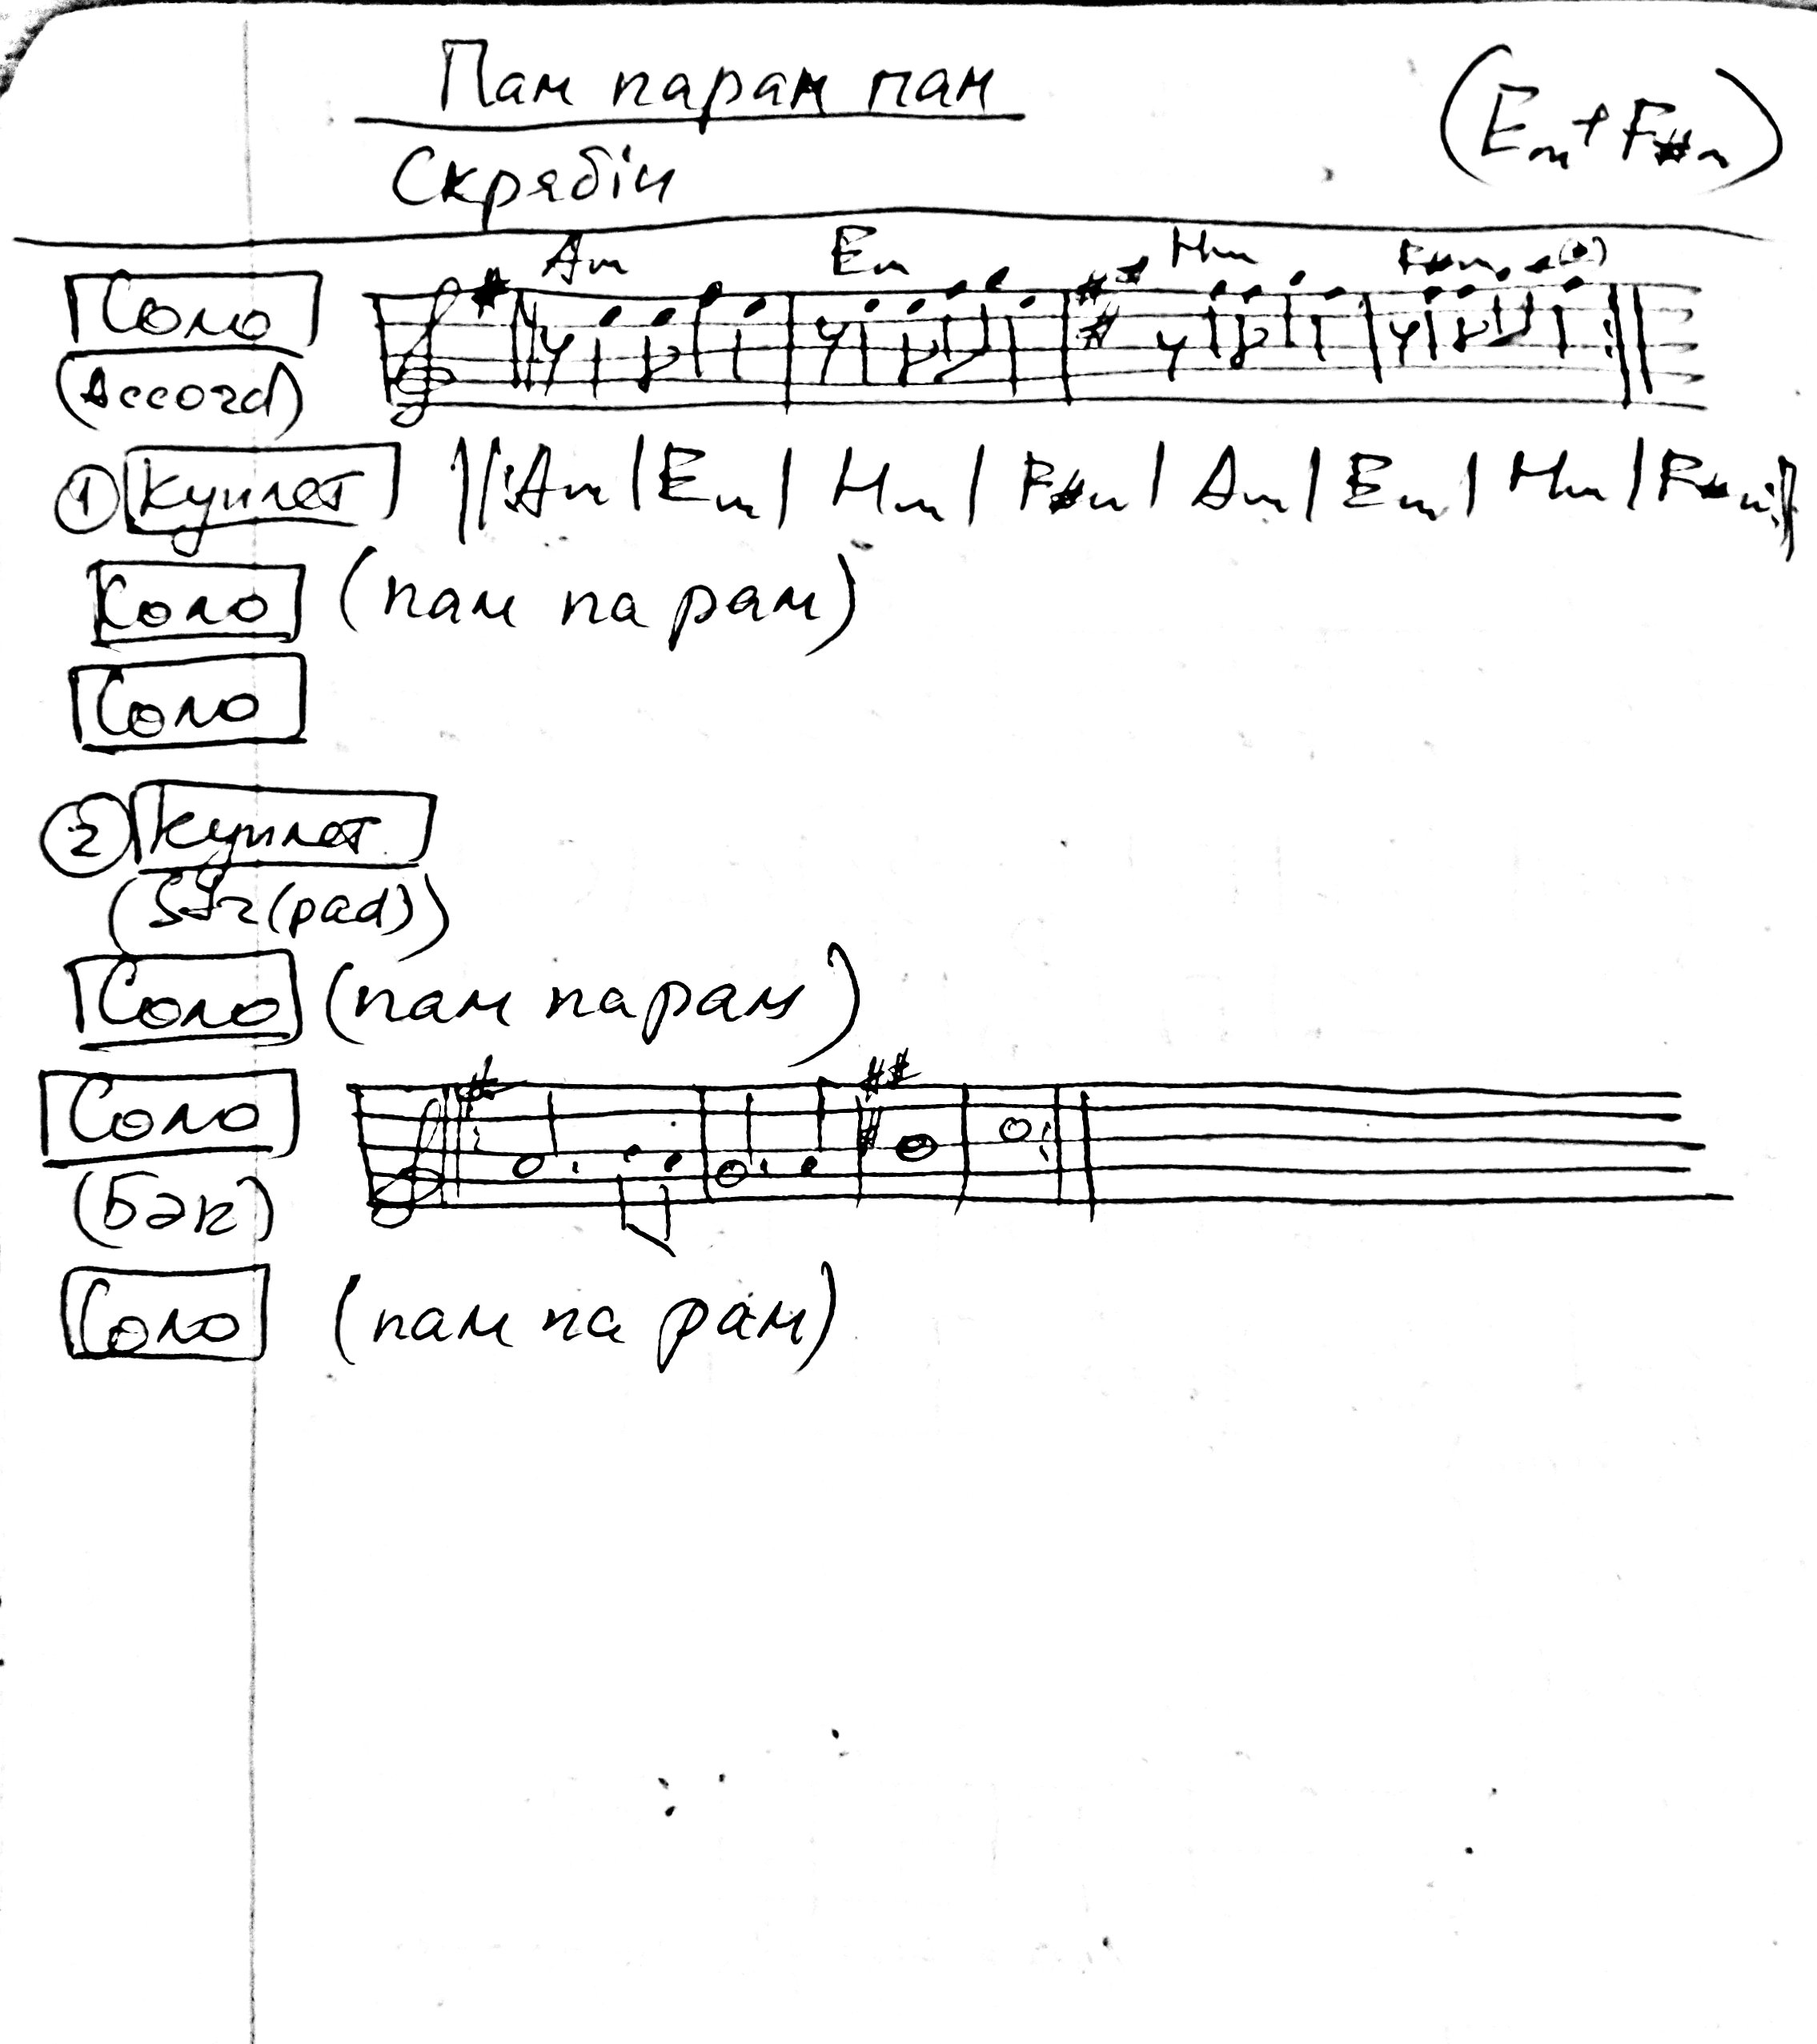 Пам парам пам (Em + F#m)
Скрябін
Am Em Hm F#m
Соло
(Accord)
① Куплет ||: Am | Em | Hm | F#m | Am | Em | Hm | F#m :||
Соло (пам па рам)
Соло
② Куплет
(pad)
Соло (пам парам)
Соло
(Бэк)
Соло (пам па рам)